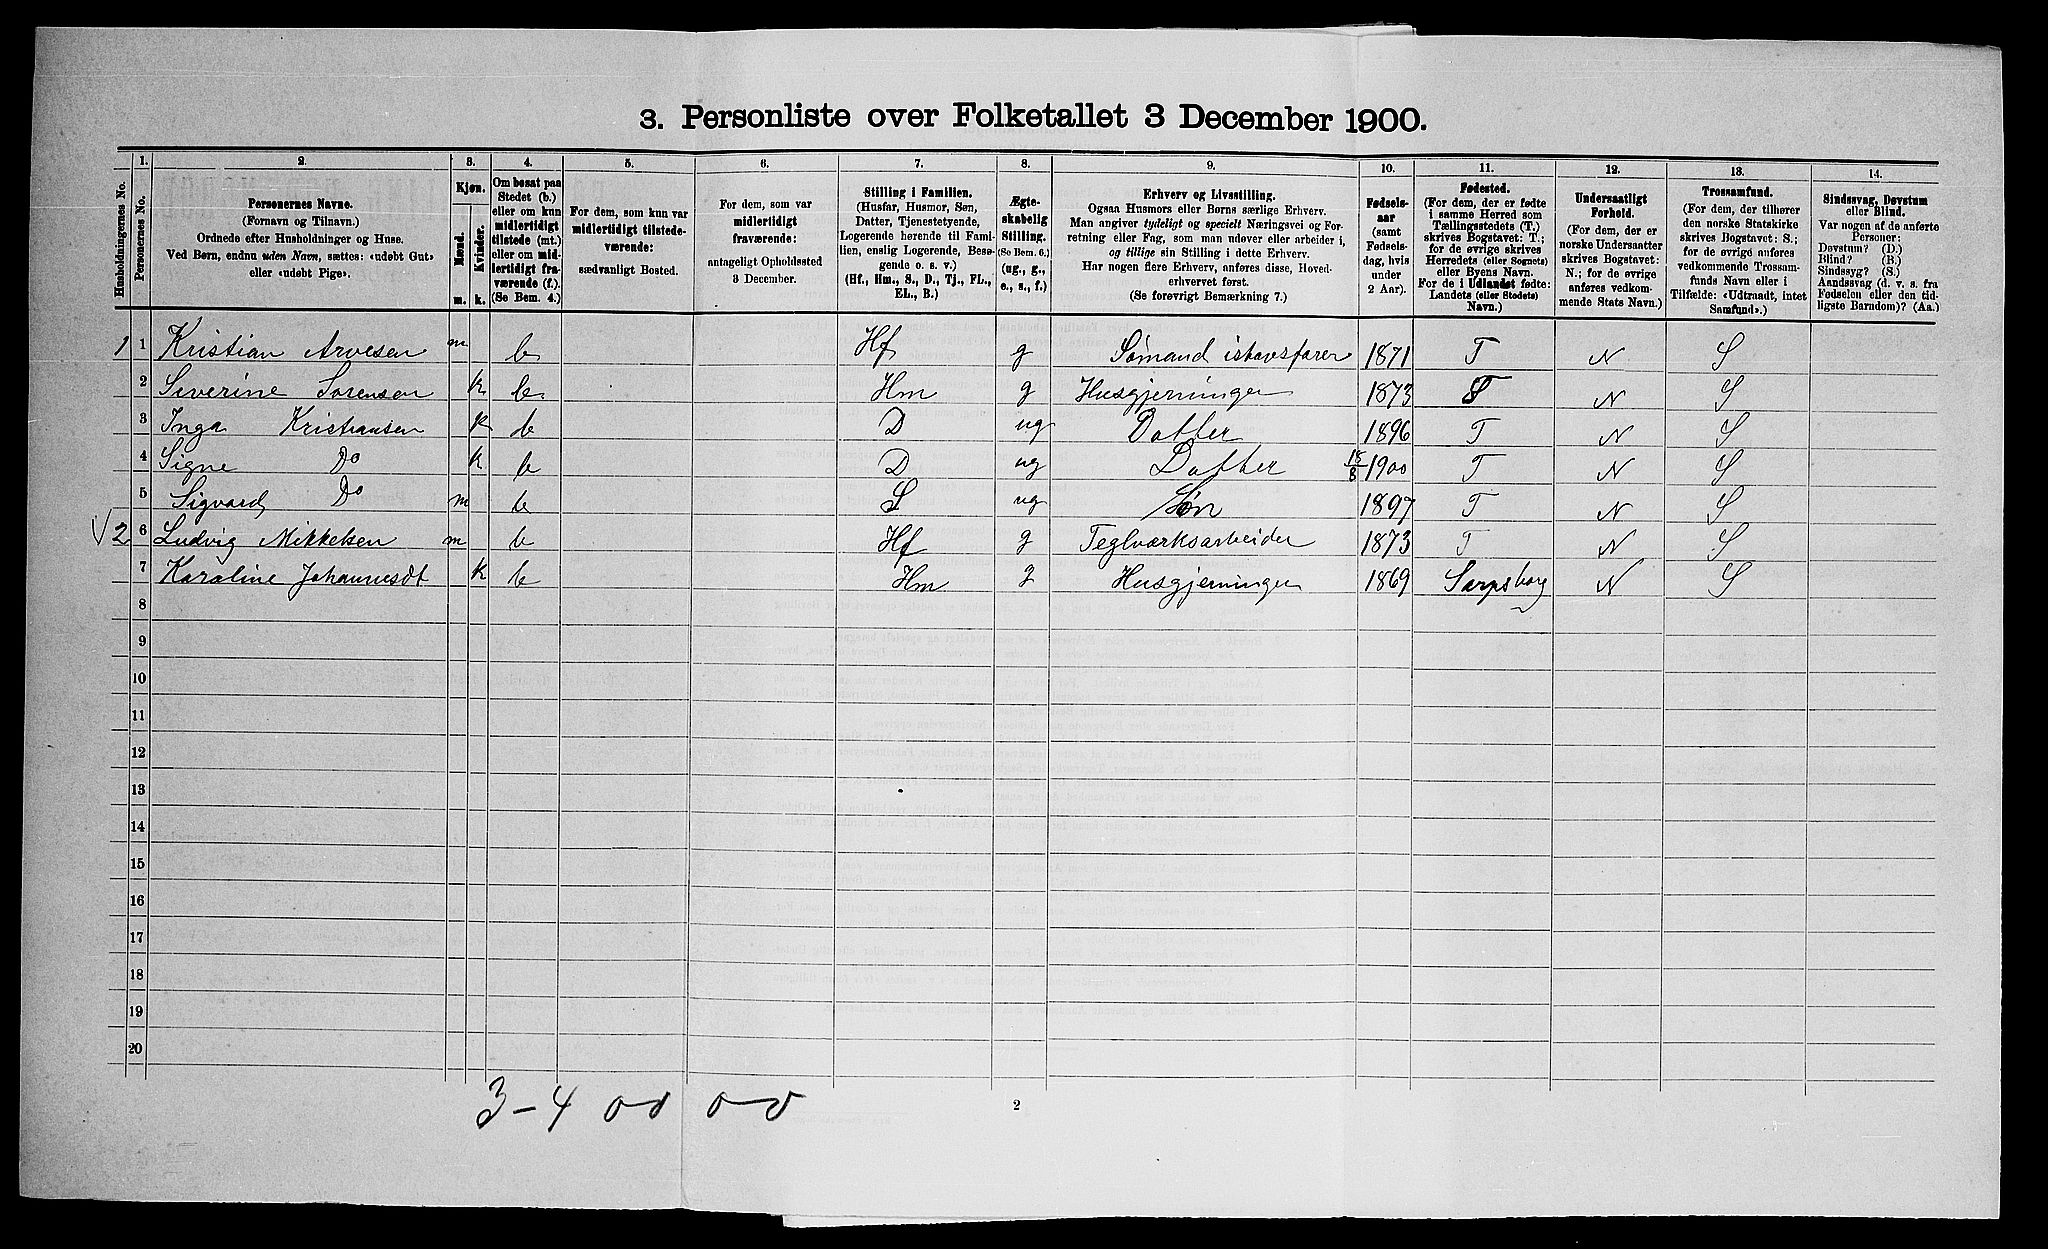 3. Personliste over Folketallet 3 December 1900.
Husholdningernes No.
1.
Personernes No.
2.
Personernes Navne.
(Fornavn og Tilnavn.)
Ordnede efter Husholdninger og Huse.
Ved Børn, endnu uden Navn, sættes: «udøbt Gut»
eller «udøbt Pige».
3.
Kjøn.
Mænd.
Kvinder.
m.
k.
4.
Om bosat paa
Stedet (b.)
eller om kun
midlertidigt
tilstede (mt.)
eller om mid-
lertidigt fra-
værende (f.).
(Se Bem. 4.)
5.
For dem, som kun var
midlertidigt tilstede-
værende:
sædvanligt Bosted.
6.
For dem, som var
midlertidigt
fraværende:
antageligt Opholdssted
3 December.
7.
Stilling i Familien.
(Husfar, Husmor, Søn,
Datter, Tjenestetyende,
Logerende hørende til Fami-
lien, enslig Logerende, Besø-
gende o. s. v.)
(Hf., Hm., S., D., Tj., FL.,
EL., B.)
8.
Ægte-
skabelig
Stilling.
(Se Bem. 6.)
(ug., g.,
e., s., f.)
9.
Erhverv og Livsstilling.
Ogsaa Husmors eller Børns særlige Erhverv.
Man angiver tydeligt og specielt Næringsvei og For-
retning eller Fag, som man udøver eller arbeider i,
og tillige sin Stilling i dette Erhverv.
Har nogen flere Erhverv, anføres disse, Hoved-
erhvervet først.
(Se forøvrigt Bemærkning 7.)
10.
Fødsels-
aar
(samt
Fødsels-
dag, hvis
under
2 Aar).
11.
Fødested.
(For dem, der er fødte
i samme Herred som
Tællingsstedets (T.)
skrives Bogstavet: T.;
for de øvrige skrives
Herredets (eller Sognets)
eller Byens Navn.
For de i Udlandet fødte:
Landets (eller Stedets)
Navn.)
12.
Undersaatligt
Forhold.
(For dem, der er
norske Undersaatter
skrives Bogstavet:
N.; for de øvrige
anføres vedkom-
mende Stats Navn.)
13.
Trossamfund.
(For dem, der tilhører
den norske Statskirke
skrives Bogstavet: S.;
for de øvrige anføres
vedkommende Trossam-
funds Navn eller i
Tilfælde: «Udtraadt, intet
Samfund».)
14.
Sindssvag, Døvstum
eller Blind.
Var nogen af de anførte
Personer:
Døvstum? (D.)
Blind? (B.)
Sindssyg? (S.)
Aandssvag (d. v. s. fra
Fødselen eller den tid-
ligste Barndom)? (Aa.)
1 1 Kristian Arvesen m b Hf g Sømand ishavsfarer 1871 T N S
2 Severine Sorensen k b Hm g Husgjerninger 1873 T N S
3 Inga Kristiansen k b D ug Datter 1896 T N S
4 Signe Do k b D ug Datter 15/8 1900 T N S
5 Sigvard Do m b S ug Søn 1897 T N S
√2 6 Ludvig Mikkelsen m b Hf g Teglværksarbeider 1873 T N S
7 Karoline Johannesdt k b Hm g Husgjerninger 1869 Sarpsborg N S
8
9
10
11
12
13
14
15
16
17
18
19
20
3-4
2